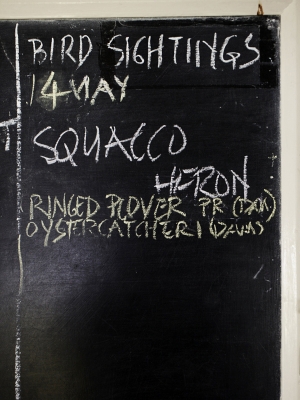 BIRD SIGHTINGS
14 MAY
SQUACCO
HERON
RINGED PLOVER PR
OYSTERCATCHER 1